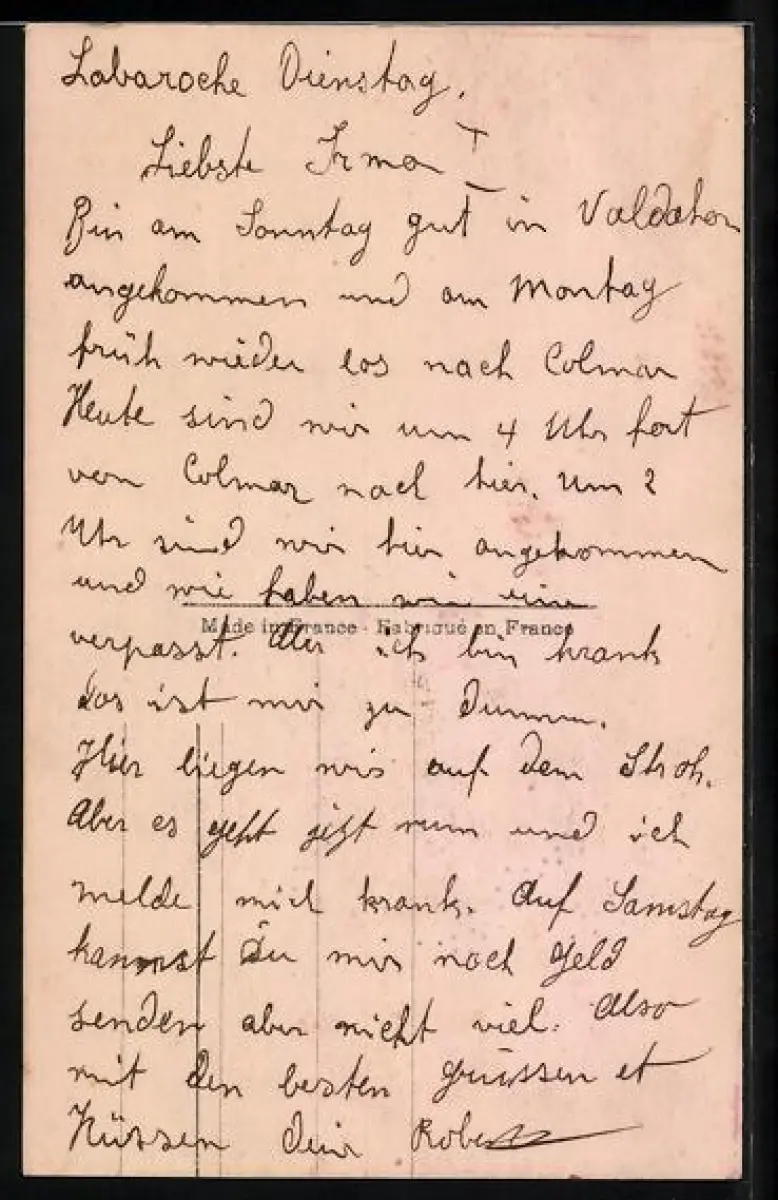 Labaroche Dienstag.
Liebste Irma
Bin am Sonntag gut in Valdahon
angekommen und am Montag
früh wieder los nach Colmar
Heute sind wir um 4 Uhr fort
von Colmar nach hier. Um 2
Uhr sind wir hier angekommen
und wie haben wir eine
Made in France - Fabriqué en France
verpasst. Aber ich bin krank
das ist mir zu dumm.
Hier liegen wir auf dem Stroh.
Aber es geht jetzt rum und ich
melde mich krank. Auf Samstag
kannst Du mir noch Geld
senden aber nicht viel. Also
mit den besten Grüssen et
Küssen dein Robert